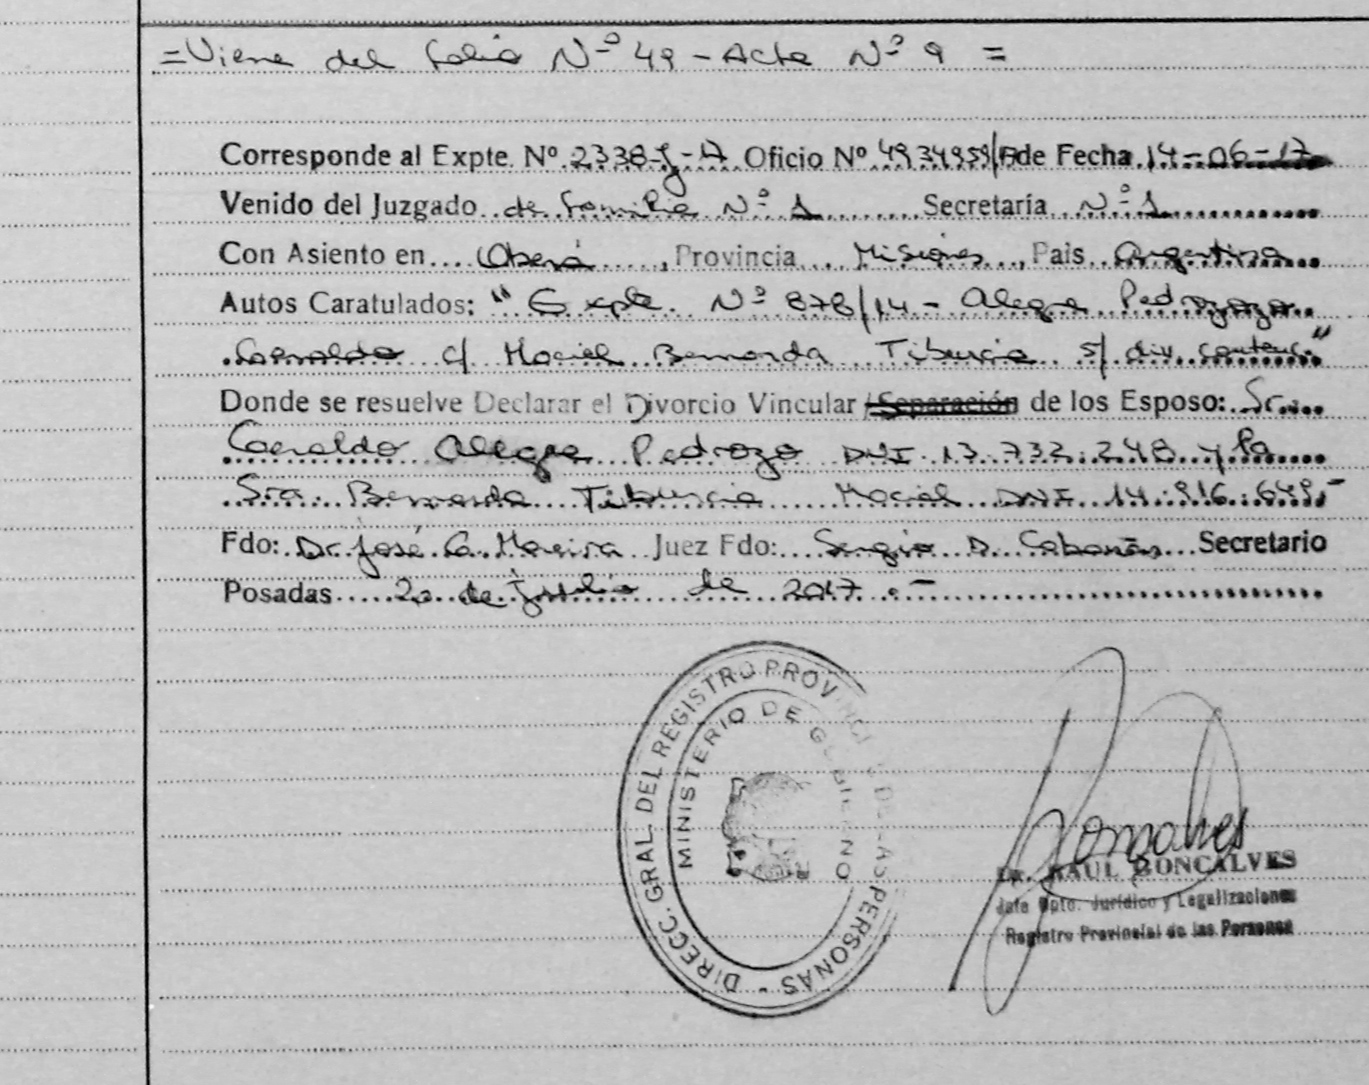 =Viene del folio Nº 49 - Acta Nº 9 =
Corresponde al Expte. Nº 2338-J-A Oficio Nº 4934959/ de Fecha 14-06-17
Venido del Juzgado de Familia Nº 1 Secretaría Nº 1
Con Asiento en Oberá, Provincia Misiones, País Argentina
Autos Caratulados: "Expte. Nº 878/14 - Alegre Pedrozo
Geraldo c/ Maciel Bernarda Tiburcia s/ div. contenc."
Donde se resuelve Declarar el Divorcio Vincular /Separación de los Esposo: Sr.
Geraldo Alegre Pedrozo DNI 13.732.248 y la
Sra. Bernarda Tiburcia Maciel DNI 14.916.649.-
Fdo: Dr. José G. Moreira Juez Fdo: Sergio D. Cabañas Secretario
Posadas 20 de Julio de 2017.-
DIRECC. GRAL. DEL REGISTRO PROVINCIAL DE LAS PERSONAS -
MINISTERIO DE GOBIERNO
Goncalves
Dr. RAUL GONCALVES
Jefe Dpto. Jurídico y Legalizaciones
Registro Provincial de las Personas